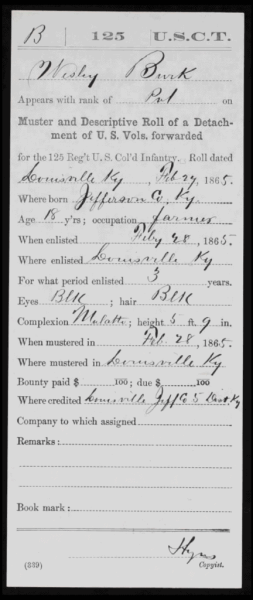 B | 125 | U.S.C.T.
Wesley Burk
Appears with rank of Pvt on
Muster and Descriptive Roll of a Detach-
ment of U. S. Vols. forwarded
for the 125 Reg't U. S. Col'd Infantry. Roll dated
Louisville Ky, Feb 27, 1865.
Where born Jefferson Co, Ky.
Age 18 y'rs; occupation farmer
When enlisted Feby 28, 1865.
Where enlisted Louisville Ky
For what period enlisted 3 years.
Eyes Blk ; hair Blk
Complexion Mulatto; height 5 ft. 9 in.
When mustered in Feb. 28, 1865.
Where mustered in Louisville Ky
Bounty paid $ 100; due $ 100
Where credited Louisville Jeff Co 5 Dist. Ky
Company to which assigned
Remarks:
Book mark:
(339) Copyist.